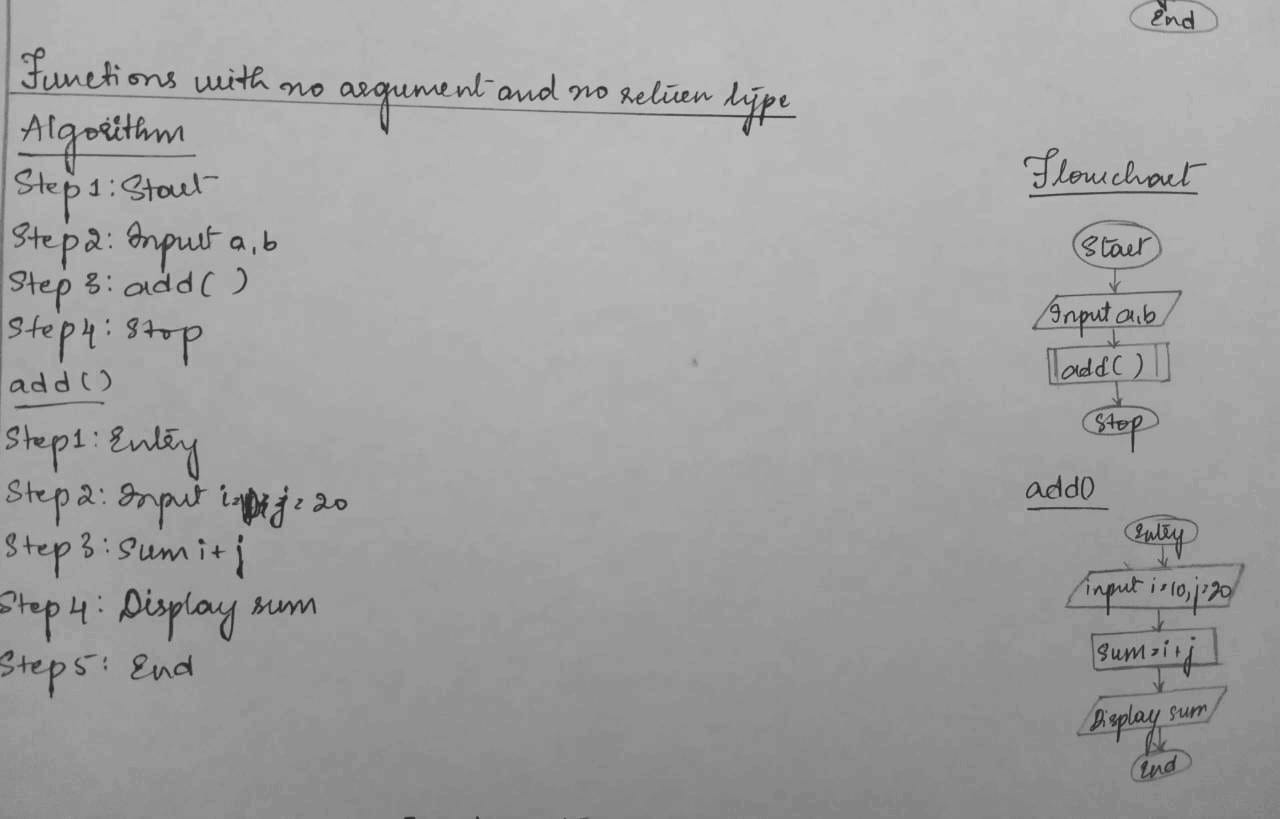 End
Functions with no argument and no return type
Algorithm
Step 1: Start
Step 2: Input a, b
Step 3: add( )
Step 4: Stop
add()
Step1: Entry
Step 2: Input i= j = 20
Step 3: Sum i+j
Step 4: Display sum
Step 5: End
Flowchart
Start
Input a,b
add( )
Stop
add()
Entry
input i=10, j=20
Sum=i+j
Display sum
End